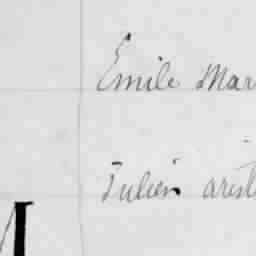 Emile Mar
Julien arist